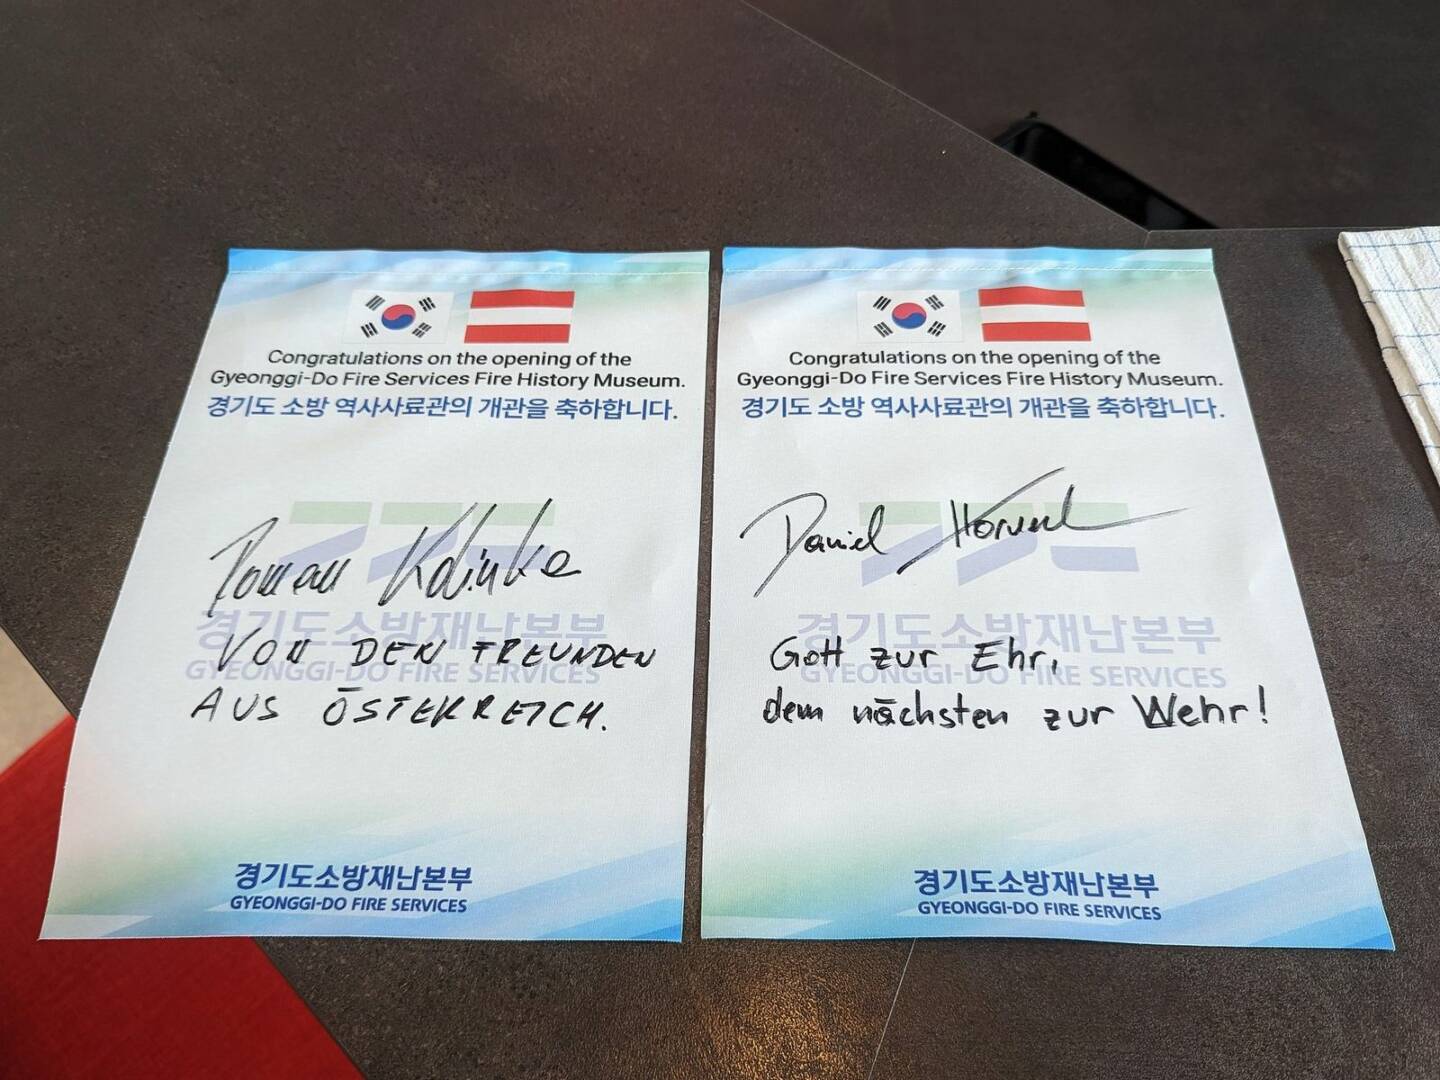 Congratulations on the opening of the
Gyeonggi-Do Fire Services Fire History Museum.
경기도 소방 역사사료관의 개관을 축하합니다.
Roman Kdinka
경기도소방재난본부
GYEONGGI-DO FIRE SERVICES
VON DEN FREUNDEN
AUS ÖSTERREICH.
경기도소방재난본부
GYEONGGI-DO FIRE SERVICES
Congratulations on the opening of the
Gyeonggi-Do Fire Services Fire History Museum.
경기도 소방 역사사료관의 개관을 축하합니다.
Daniel
경기도소방재난본부
GYEONGGI-DO FIRE SERVICES
Gott zur Ehr,
dem nächsten zur Wehr!
경기도소방재난본부
GYEONGGI-DO FIRE SERVICES